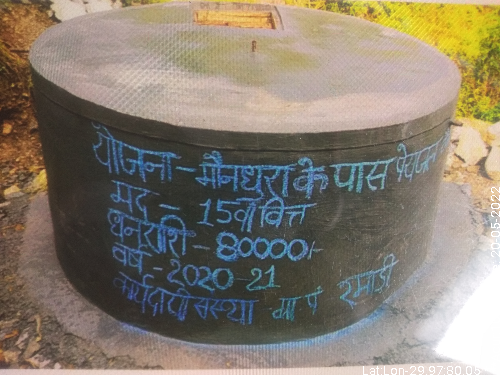 योजना - मैनधरा के पास पेयजल
मद - 15वां वित्त
धनराशि - 80000/-
वर्ष - 2020-21
कार्यदायी सस्था ग्रा पं रमाडी
20.05.2022
Lat,Lon-29.97,80.05